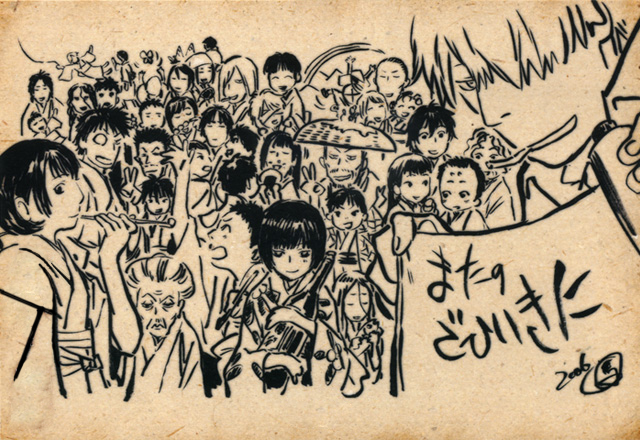 またの
ごひいきに
2006